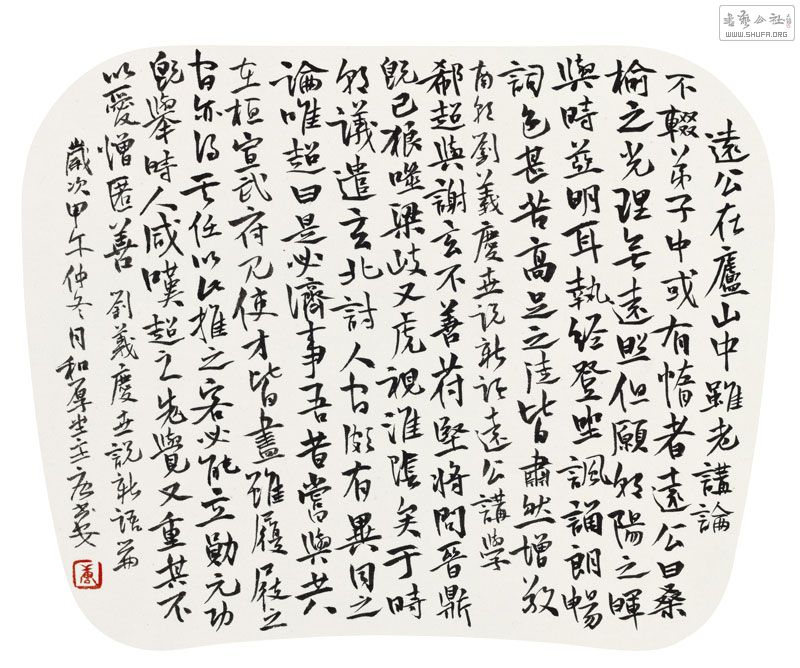 遠公在廬山中雖老講論
不輟弟子中或有惰者遠公曰桑
榆之光理無遠照但願朝陽之暉
與時並明耳執經登坐諷誦朗暢
詞色甚苦高足之徒皆肅然增敬
南朝劉義慶世說新語遠公講學
郗超與謝玄不善苻堅將問晉鼎
既已狼噬梁岐又虎視淮陰矣于時
朝議遣玄北討人間頗有異同之
論唯超曰是必濟事吾昔嘗與共
在桓宣武府見使才皆盡雖履屐之
間亦得其任以此推之容必能立勛元功
既舉時人咸嘆超之先覺又重其不
以愛憎匿善 劉義慶世說新語篇
歲次甲午仲冬月和厚堂主
書藝公社
WWW.SHUFA.ORG